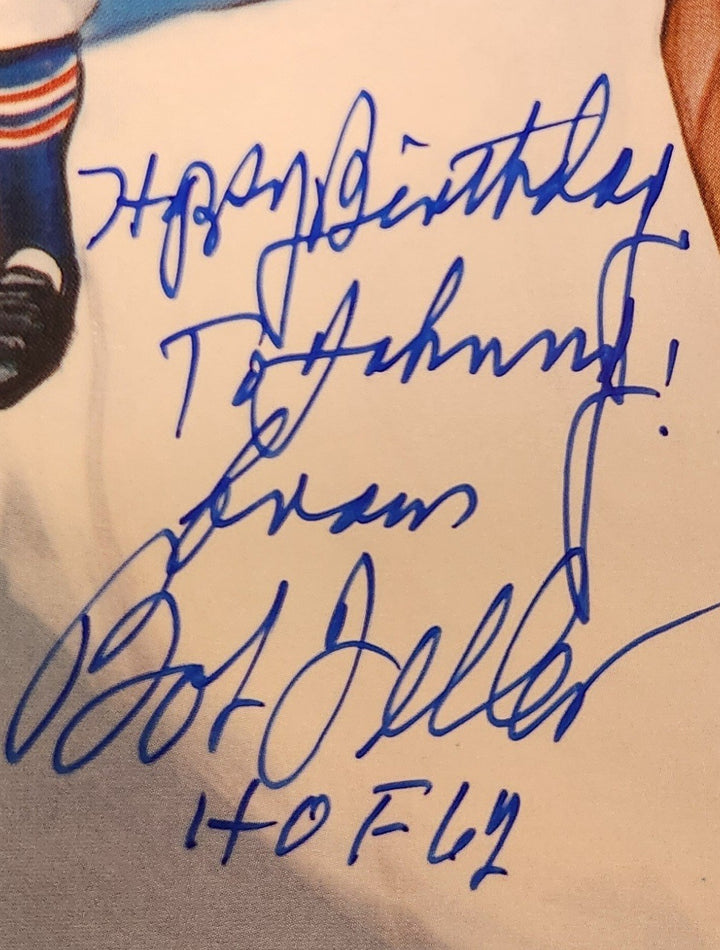 Happy Birthday
To Johnny!
Bob Feller
HOF 62